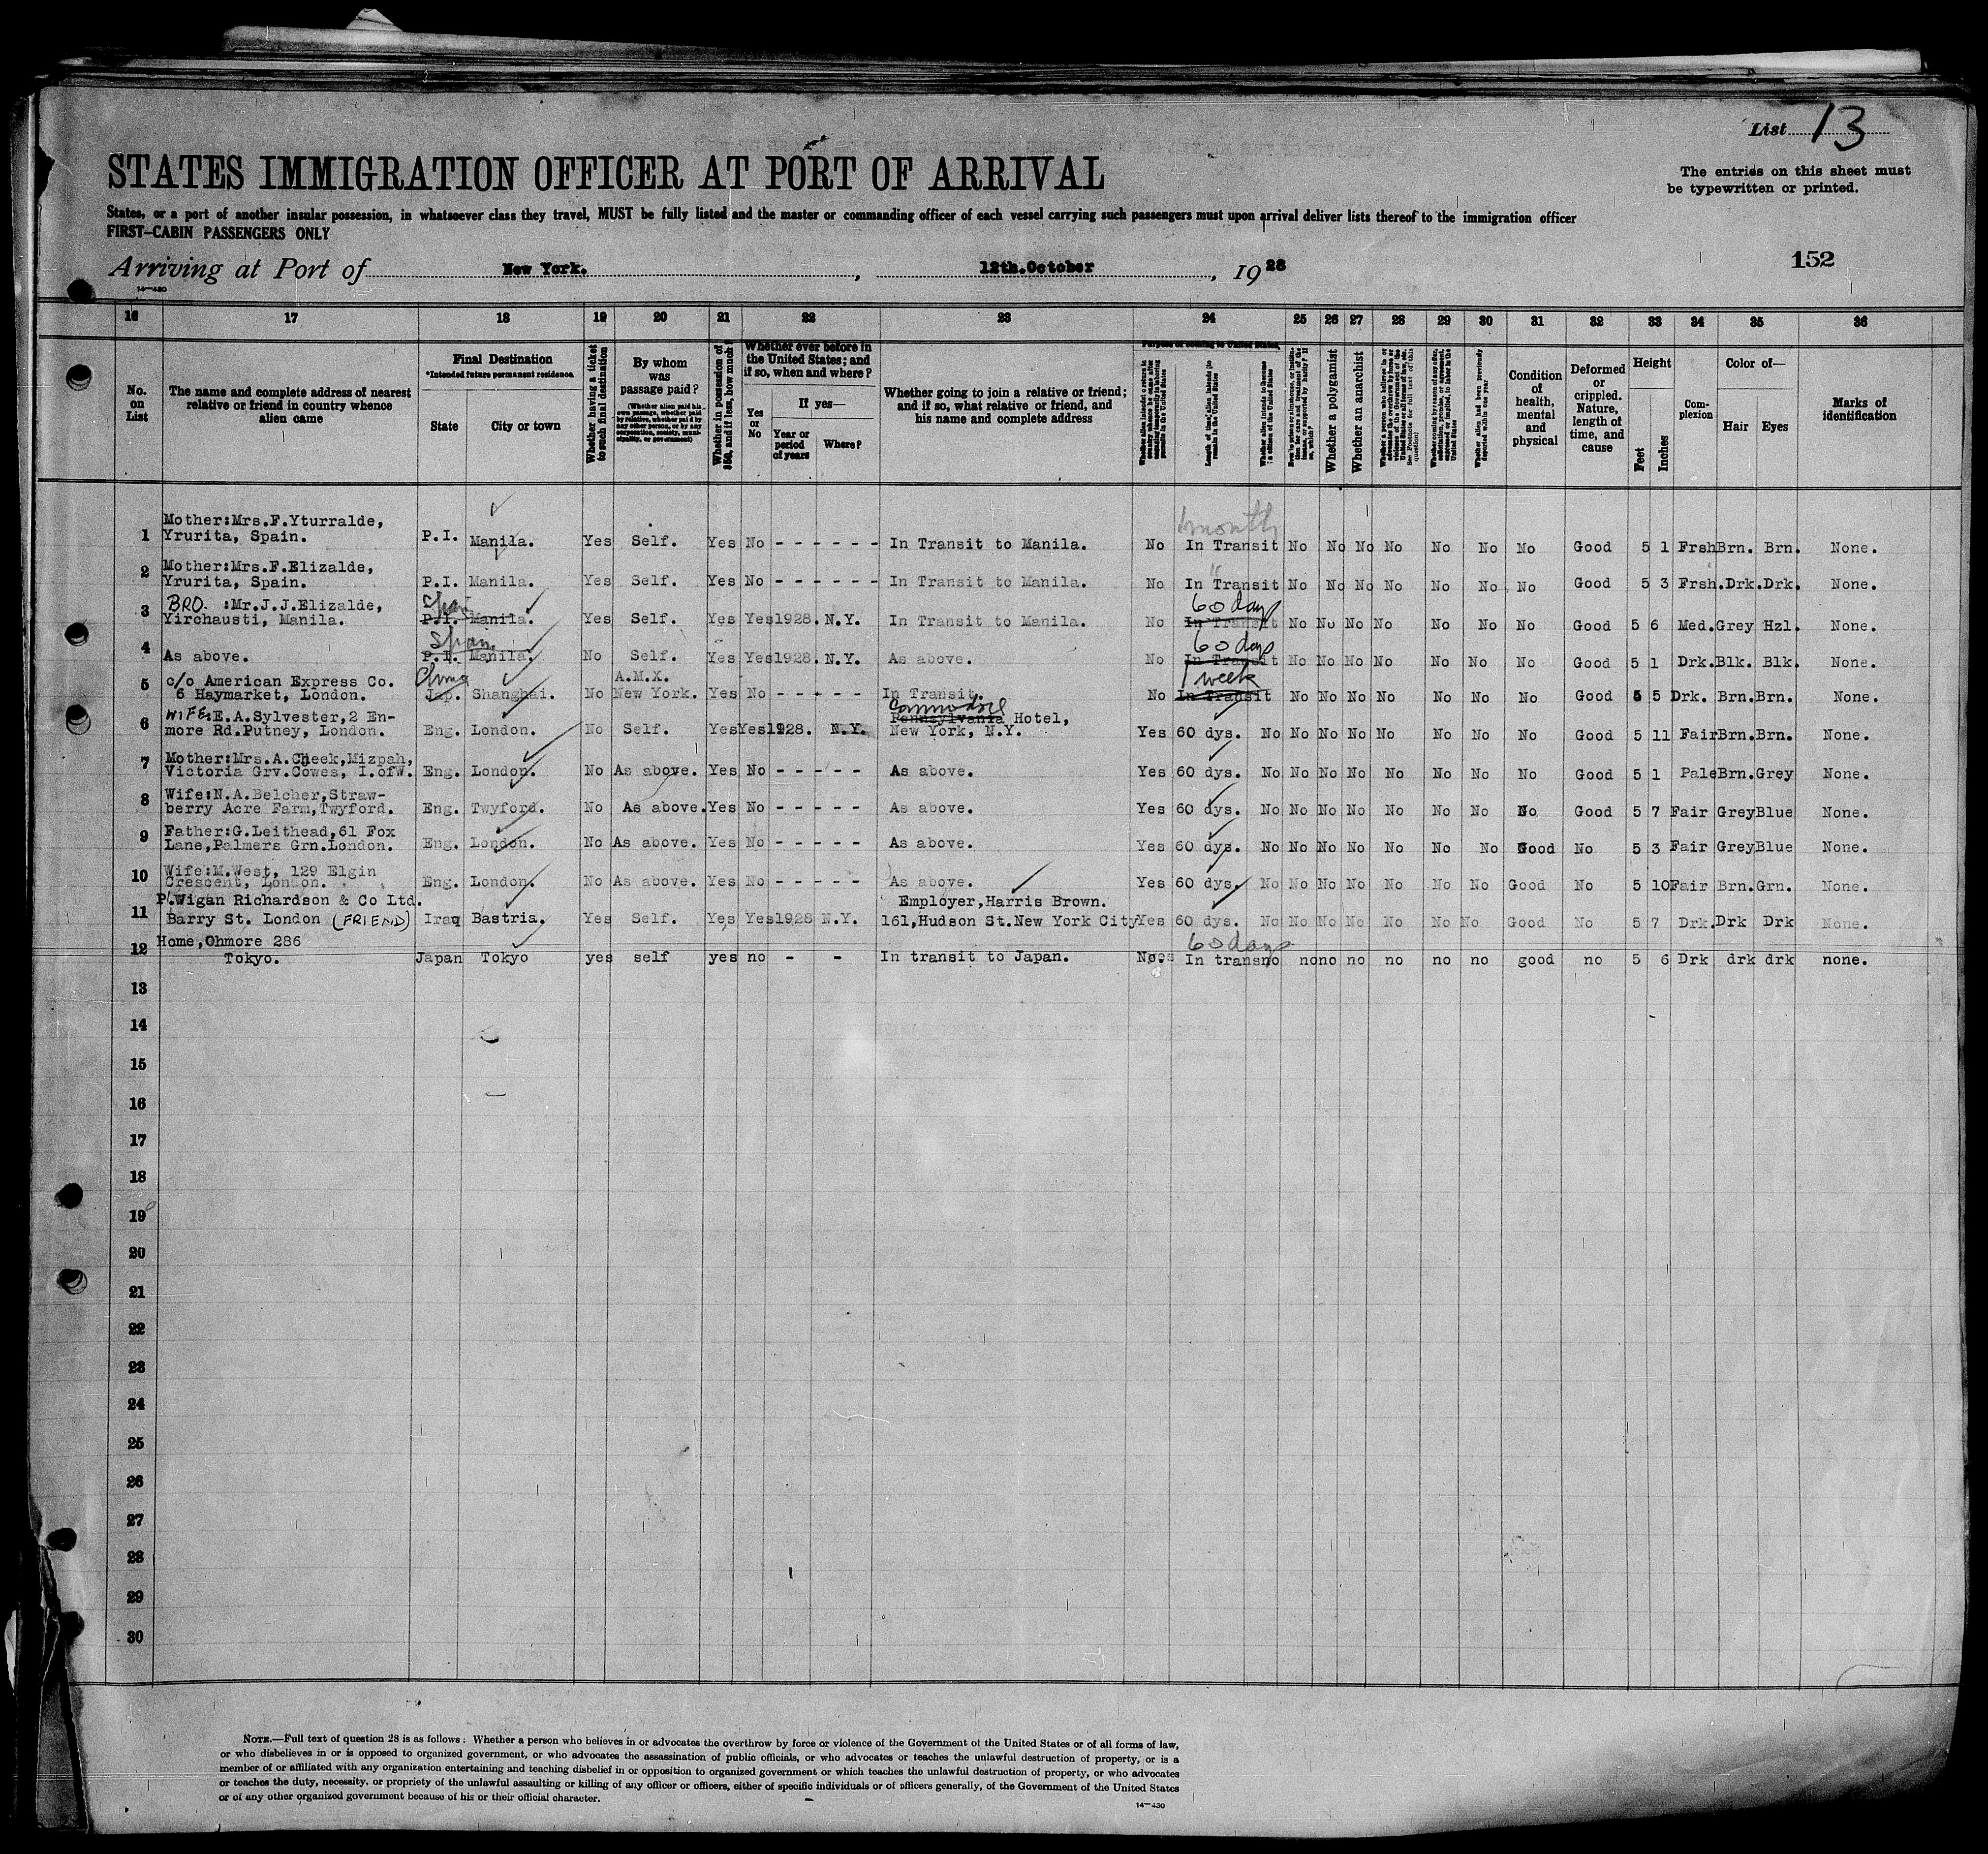 List 13
STATES IMMIGRATION OFFICER AT PORT OF ARRIVAL
The entries on this sheet must
be typewritten or printed.
States, or a port of another insular possession, in whatsoever class they travel, MUST be fully listed and the master or commanding officer of each vessel carrying such passengers must upon arrival deliver lists thereof to the immigration officer
FIRST-CABIN PASSENGERS ONLY
Arriving at Port of New York. , 12th.October , 1928
152
14-430
16 17 18 19 20 21 22 23 24 25 26 27 28 29 30 31 32 33 34 35 36
No. on List
The name and complete address of nearest relative or friend in country whence alien came
Final Destination
*Intended future permanent residence.
State
City or town
Whether having a ticket to such final destination
By whom was passage paid?
(Whether alien paid his own passage, whether paid by relative, whether paid by any other person, or by any corporation, society, municipality, or government)
Whether in possession of $50, and if less, how much?
Whether ever before in the United States; and if so, when and where?
Yes or No
If yes—
Year or period of years
Where?
Whether going to join a relative or friend; and if so, what relative or friend, and his name and complete address
Purpose of coming to United States
Length of time alien intends to remain in the United States
Whether a polygamist
Whether an anarchist
Whether alien had been previously deported within one year
Condition of health, mental and physical
Deformed or crippled. Nature, length of time, and cause
Height
Feet
Inches
Complexion
Color of—
Hair
Eyes
Marks of identification
1 month
Mother:Mrs.F.Yturralde,
1 Yrurita, Spain. P.I. Manila. Yes Self. Yes No - - - - - - In Transit to Manila. No In Transit No No No No No No No Good 5 1 Frsh Brn. Brn. None.
Mother:Mrs.F.Elizalde,
2 Yrurita, Spain. P.I. Manila. Yes Self. Yes No - - - - - - In Transit to Manila. No In Transit No No No No No No No Good 5 3 Frsh. Drk. Drk. None.
BRO. :Mr.J.J.Elizalde, Spain 60 days
3 Yirchausti, Manila. P.I. Manila. Yes Self. Yes Yes 1928. N.Y. In Transit to Manila. No In Transit No No No No No No No Good 5 6 Med. Grey Hzl. None.
Spain 60 days
4 As above. P.I. Manila. No Self. Yes Yes 1928. N.Y. As above. No In Transit No No No No No No No Good 5 1 Drk. Blk. Blk. None.
c/o American Express Co. China A.M.X. 1 week
5 6 Haymarket, London. Jap. Shanghai. No New York. Yes No - - - - - In Transit. No In Transit No No No No No No No Good 5 5 Drk. Brn. Brn. None.
WIFE:E.A.Sylvester,2 En- Commodore Pennsylvania Hotel,
6 more Rd.Putney, London. Eng. London. No Self. Yes Yes 1928. N.Y. New York, N.Y. Yes 60 dys. No No No No No No No No Good 5 11 Fair Brn. Brn. None.
Mother:Mrs.A.Cheek,Mizpah,
7 Victoria Grv.Cowes, I.ofW. Eng. London. No As above. Yes No - - - - - As above. Yes 60 dys. No No No No No No No No Good 5 1 Pale Brn. Grey None.
Wife:N.A.Belcher,Straw-
8 berry Acre Farm,Twyford. Eng. Twyford. No As above. Yes No - - - - - As above. Yes 60 dys. No No No No No No No No Good 5 7 Fair Grey Blue None.
Father:G.Leithead,61 Fox
9 Lane,Palmers Grn.London. Eng. London. No As above. Yes No - - - - - As above. Yes 60 dys. No No No No No No No Good No 5 3 Fair Grey Blue None.
Wife:M.West, 129 Elgin
10 Crescent, London. Eng. London. No As above. Yes No - - - - - As above. Yes 60 dys. No No No No No No No Good No 5 10 Fair Brn. Grn. None.
P.Wigan Richardson & Co Ltd. Employer,Harris Brown.
11 Barry St. London (FRIEND) Iraq Bastria. Yes Self. Yes Yes 1928 N.Y. 161,Hudson St.New York City Yes 60 dys. No No No No No No No Good No 5 7 Drk. Drk Drk None.
Home,Ohmore 286 60 days
12 Tokyo. Japan Tokyo yes self yes no - - In transit to Japan. In trans no no no no no no no good no 5 6 Drk drk drk none.
13
14
15
16
17
18
19
20
21
22
23
24
25
26
27
28
29
30
NOTE.—Full text of question 28 is as follows: Whether a person who believes in or advocates the overthrow by force or violence of the Government of the United States or of all forms of law,
or who disbelieves in or is opposed to organized government, or who advocates the assassination of public officials, or who advocates or teaches the unlawful destruction of property, or is a
member of or affiliated with any organization entertaining and teaching disbelief in or opposition to organized government or which teaches the unlawful destruction of property, or who advocates
or teaches the duty, necessity, or propriety of the unlawful assaulting or killing of any officer or officers, either of specific individuals or of officers generally, of the Government of the United States
or of any other organized government because of his or their official character.
14-430